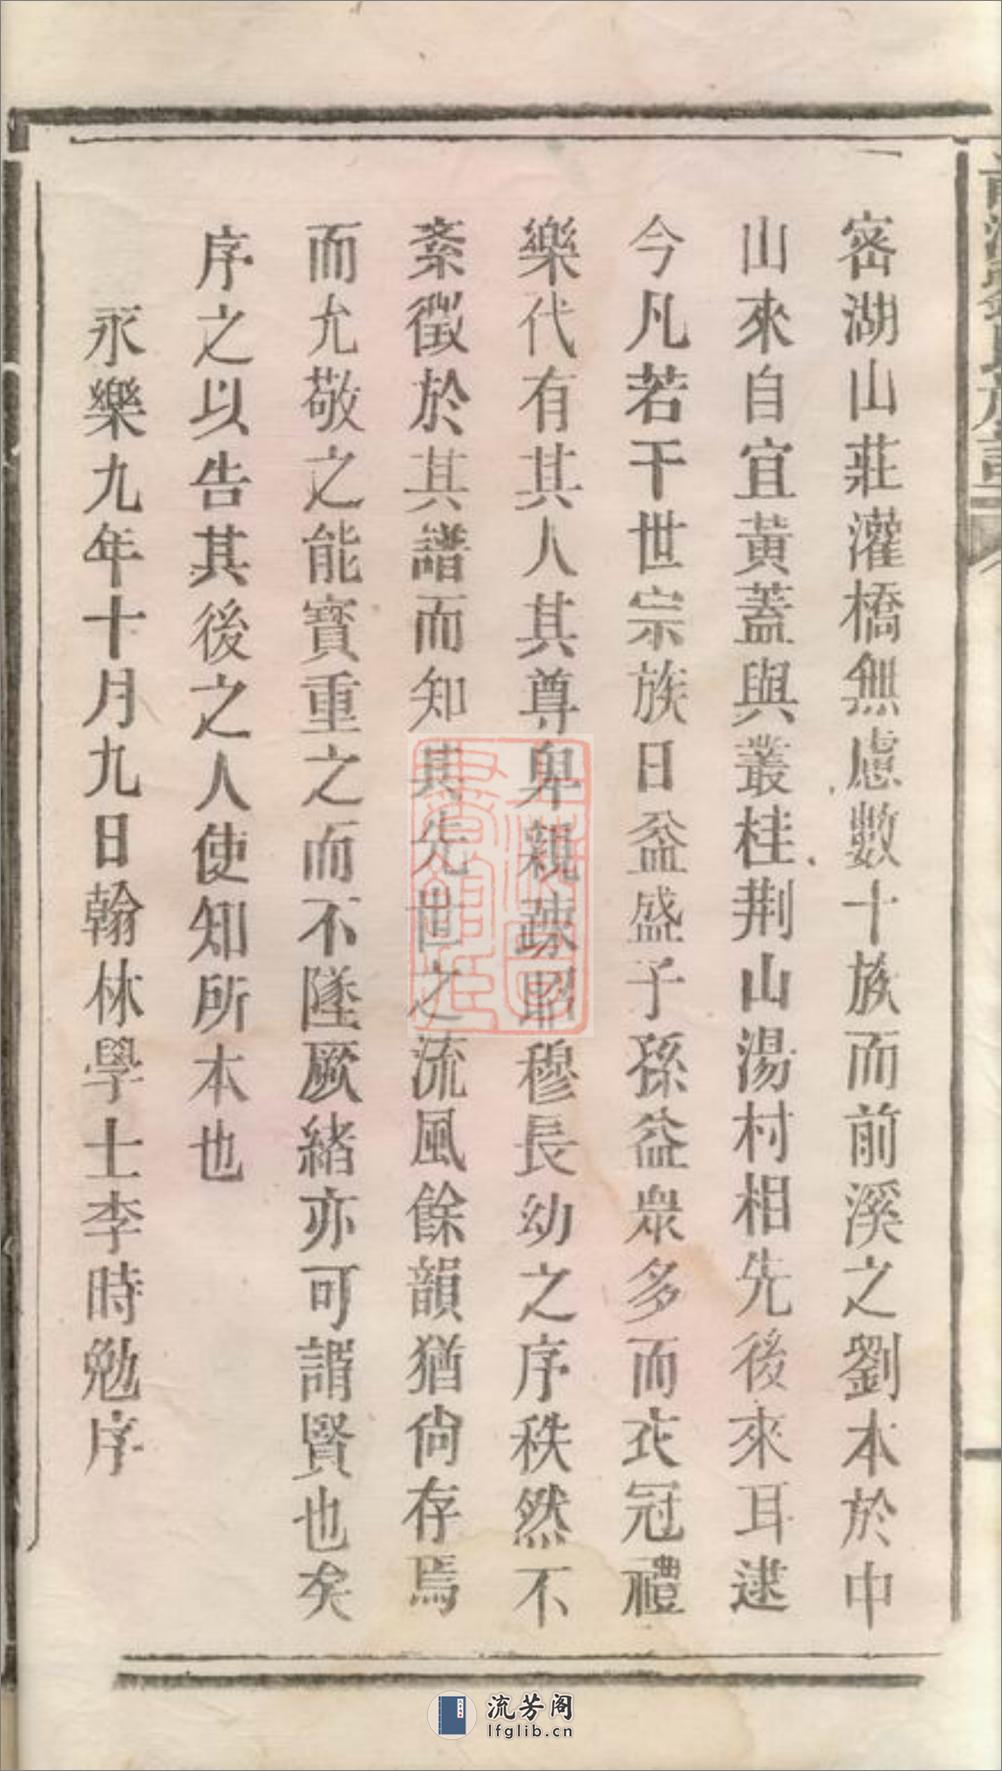 密湖山莊灌橋無慮數十族而前溪之劉本於中
山來自宜黃蓋與叢桂荆山湯村相先後來耳逮
今凡若干世宗族日益盛子孫益衆多而衣冠禮
樂代有其人其尊卑親疎昭穆長幼之序秩然不
紊徵於其譜而知其先世之流風餘韻猶尙存焉
而允敬之能寳重之而不墜厥緒亦可謂賢也矣
序之以告其後之人使知所本也
永樂九年十月九日翰林學士李時勉序
上海圖
書館藏
流芳阁
lfglib.cn